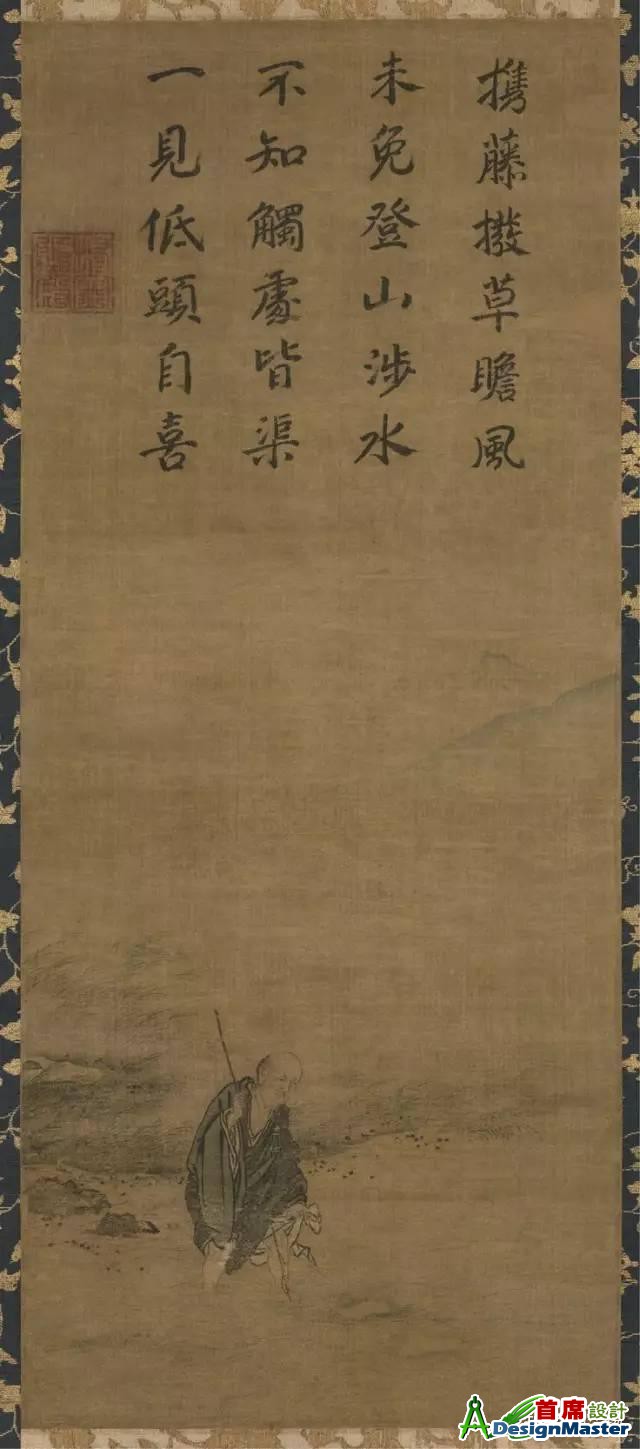 携藤撥草瞻風
未免登山涉水
不知觸處皆渠
一見低頭自喜
首席設計
ADesignMaster